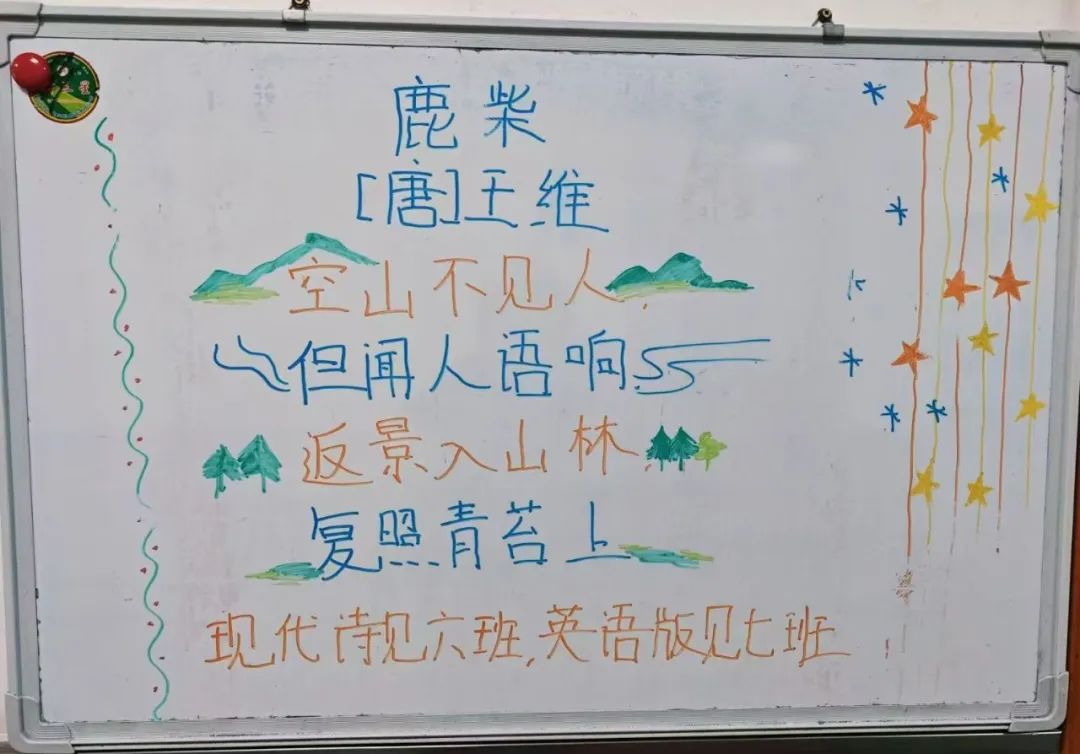 鹿柴
[唐]王维
空山不见人,
但闻人语响
返景入山林
复照青苔上
现代诗见六班,英语版见七班